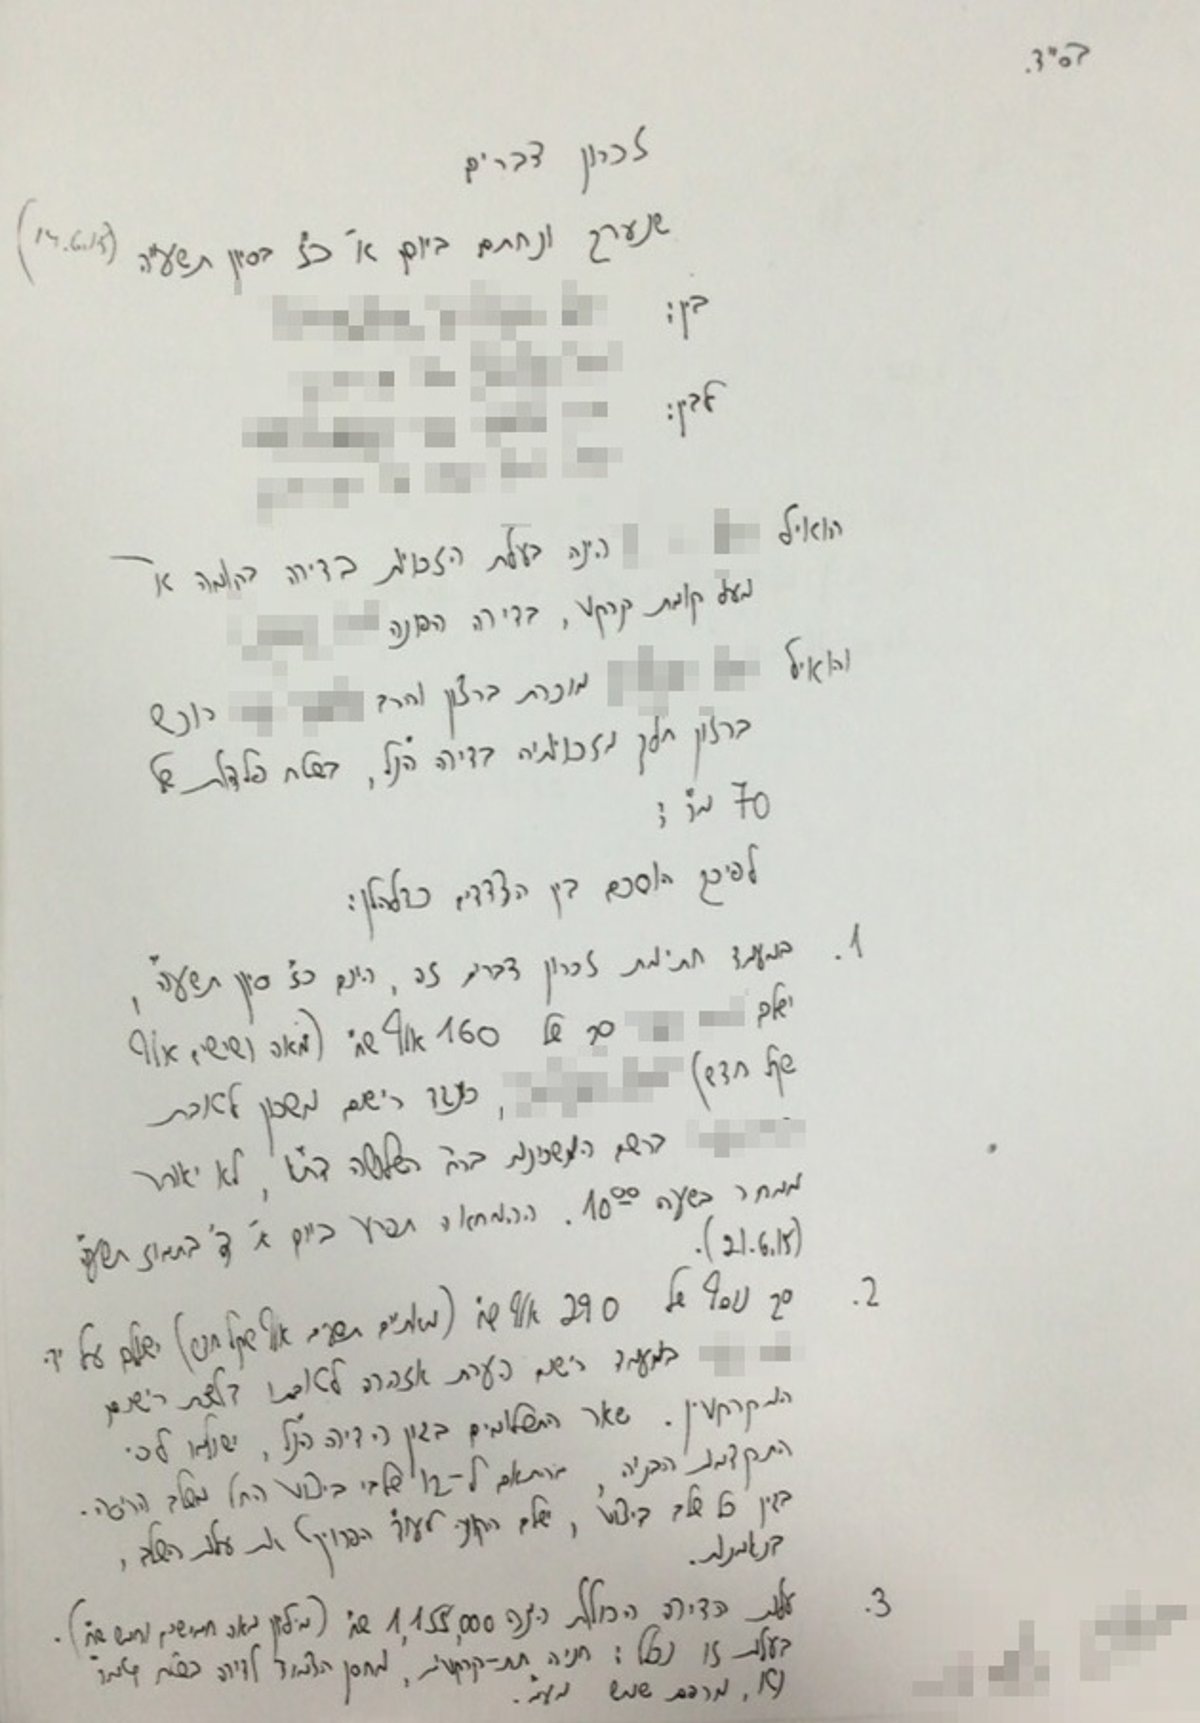 בס"ד.
זכרון דברים
שנערך ונחתם ביום א' כ"ז בסיון תשע"ה (14.6.15)
בין:
לבין:
הואיל הינה בעלת הזכויות בדירה בקומה א'
מעל קומת קרקע, בדירה הפונה
והואיל מוכרת ברצון והרב רוכש
ברצון חלק מזכויותיה בדירה הנ"ל, בשטח פלדלת של
70 מ"ר;
לפיכך הוסכם בין הצדדים כדלהלן:
1. במעמד חתימת זכרון דברים זה, היום כ"ז סיון תשע"ה,
ישלם סך של 160 אלף ש"ח (מאה ושישים אלף
שקל חדש) , כנגד רישום משכון לטובת
ברשם המשכונות ברח' השלושה בת"א, לא יאוחר
ממחר בשעה 10:00. ההמחאה תפרע ביום א' ד' בתמוז תשע"ה
(21.6.15).
2. סך נוסף של 290 אלף ש"ח (מאתיים תשעים אלף שקל חדש) ישולם על ידי
במעמד רישום הערת אזהרה לטובתו בלשכת רישום
המקרקעין. שאר התשלומים בגין הדירה הנ"ל, ישולמו לפי
התקדמות הבניה, בהתאם ל-12 שלבי ביצוע החל משלב הריסה.
בגין כל שלב ביצוע, ישלם הקונה לעו"ד הפרויקט את עלות השלב,
בנאמנות.
3. עלות הדירה הכוללת הינה 1,155,000 ש"ח (מיליון מאה חמישים וחמש ש"ח).
בעלות זו נכלל: חניה תת-קרקעית, מחסן הצמוד לדירה בשטח
מרפסת שמש